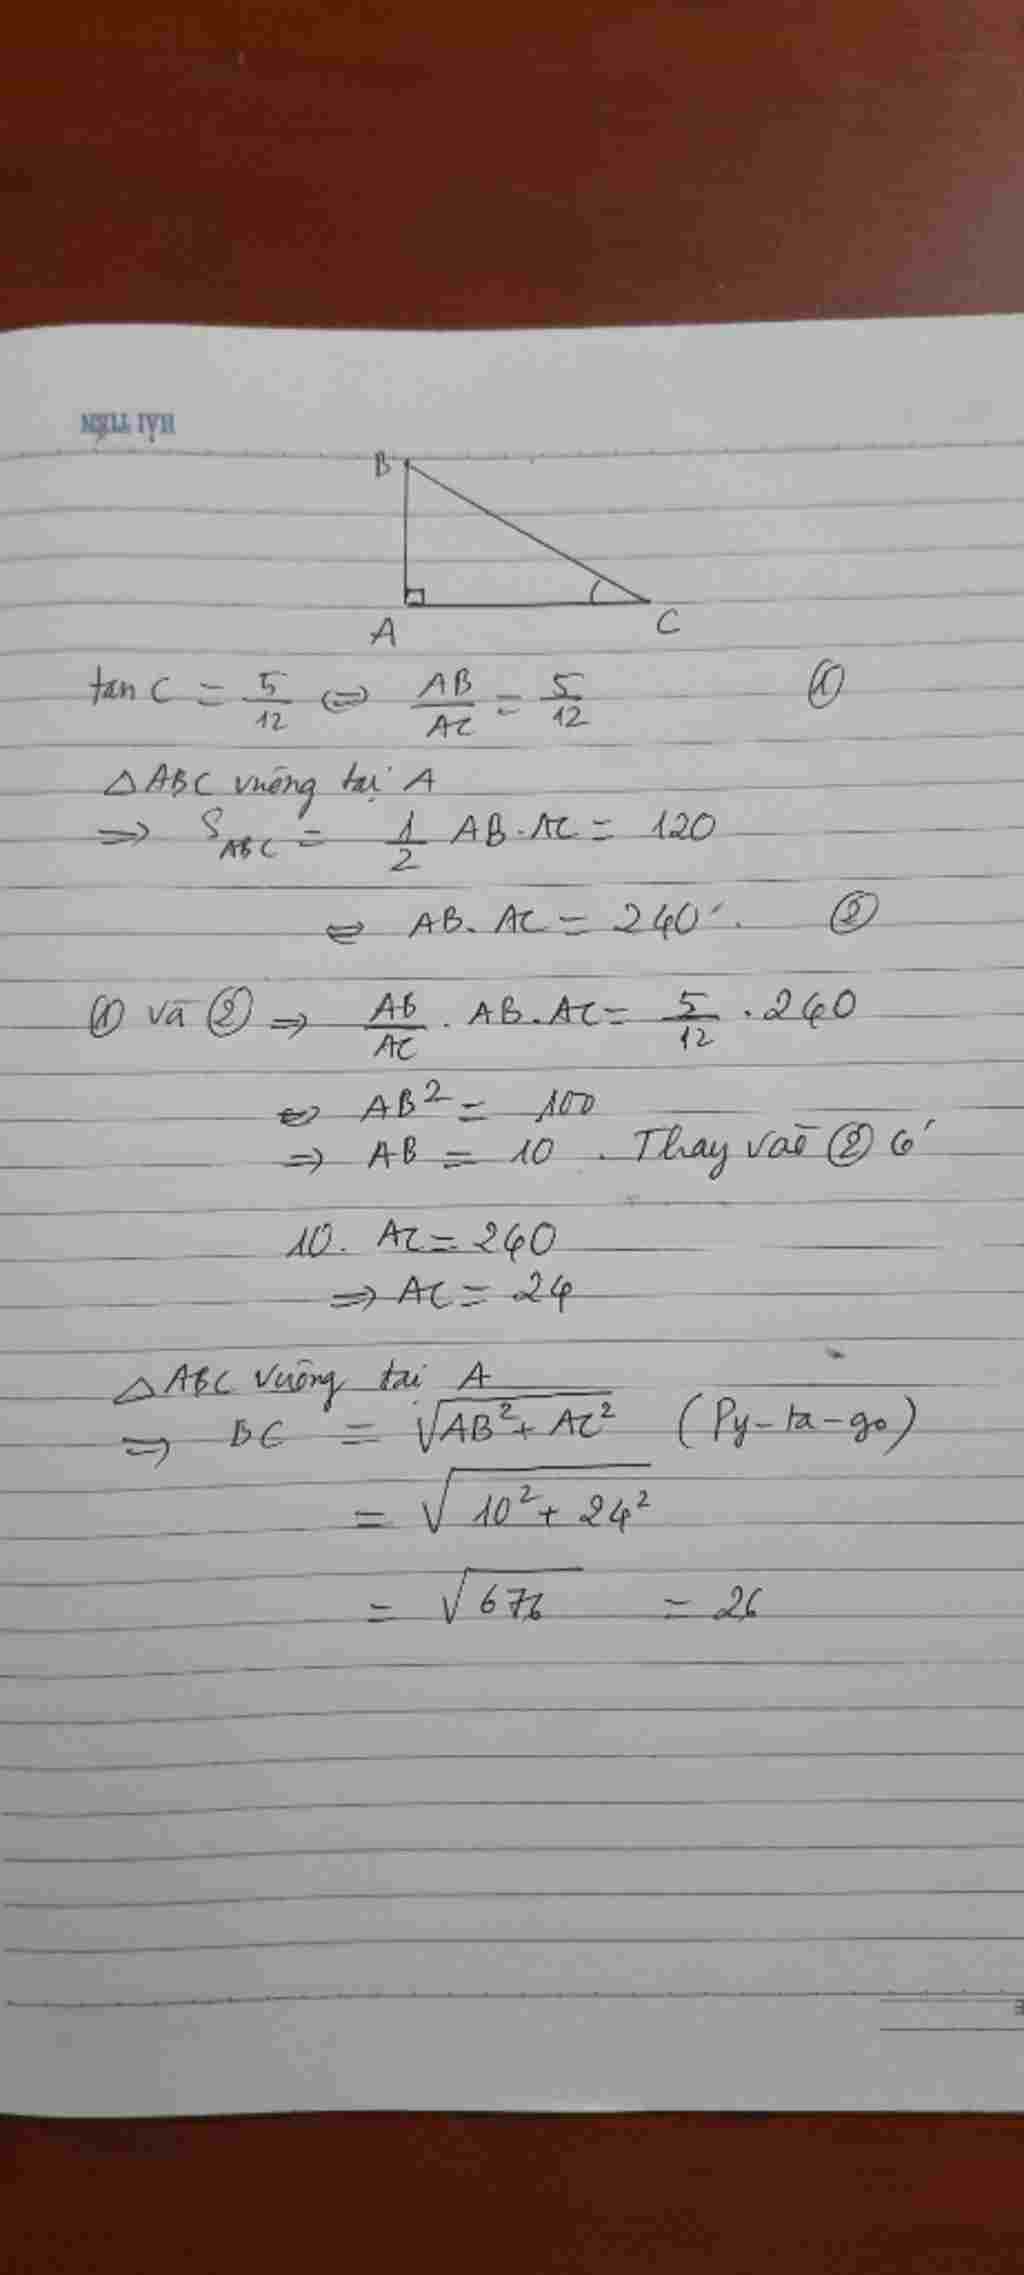 HẢI TIẾN
B
A
C
tan C = 5/12 ⇔ AB/AC = 5/12 ①
△ABC vuông tại A
⇒ S_ABC = 1/2 AB.AC = 120
⇔ AB.AC = 240. ②
① và ② ⇒ AB/AC . AB.AC = 5/12 . 240
⇔ AB² = 100
⇒ AB = 10. Thay vào ② có
10. AC = 240
⇒ AC = 24
△ABC vuông tại A
⇒ BC = √(AB² + AC²) (Py-ta-go)
= √(10² + 24²)
= √676 = 26